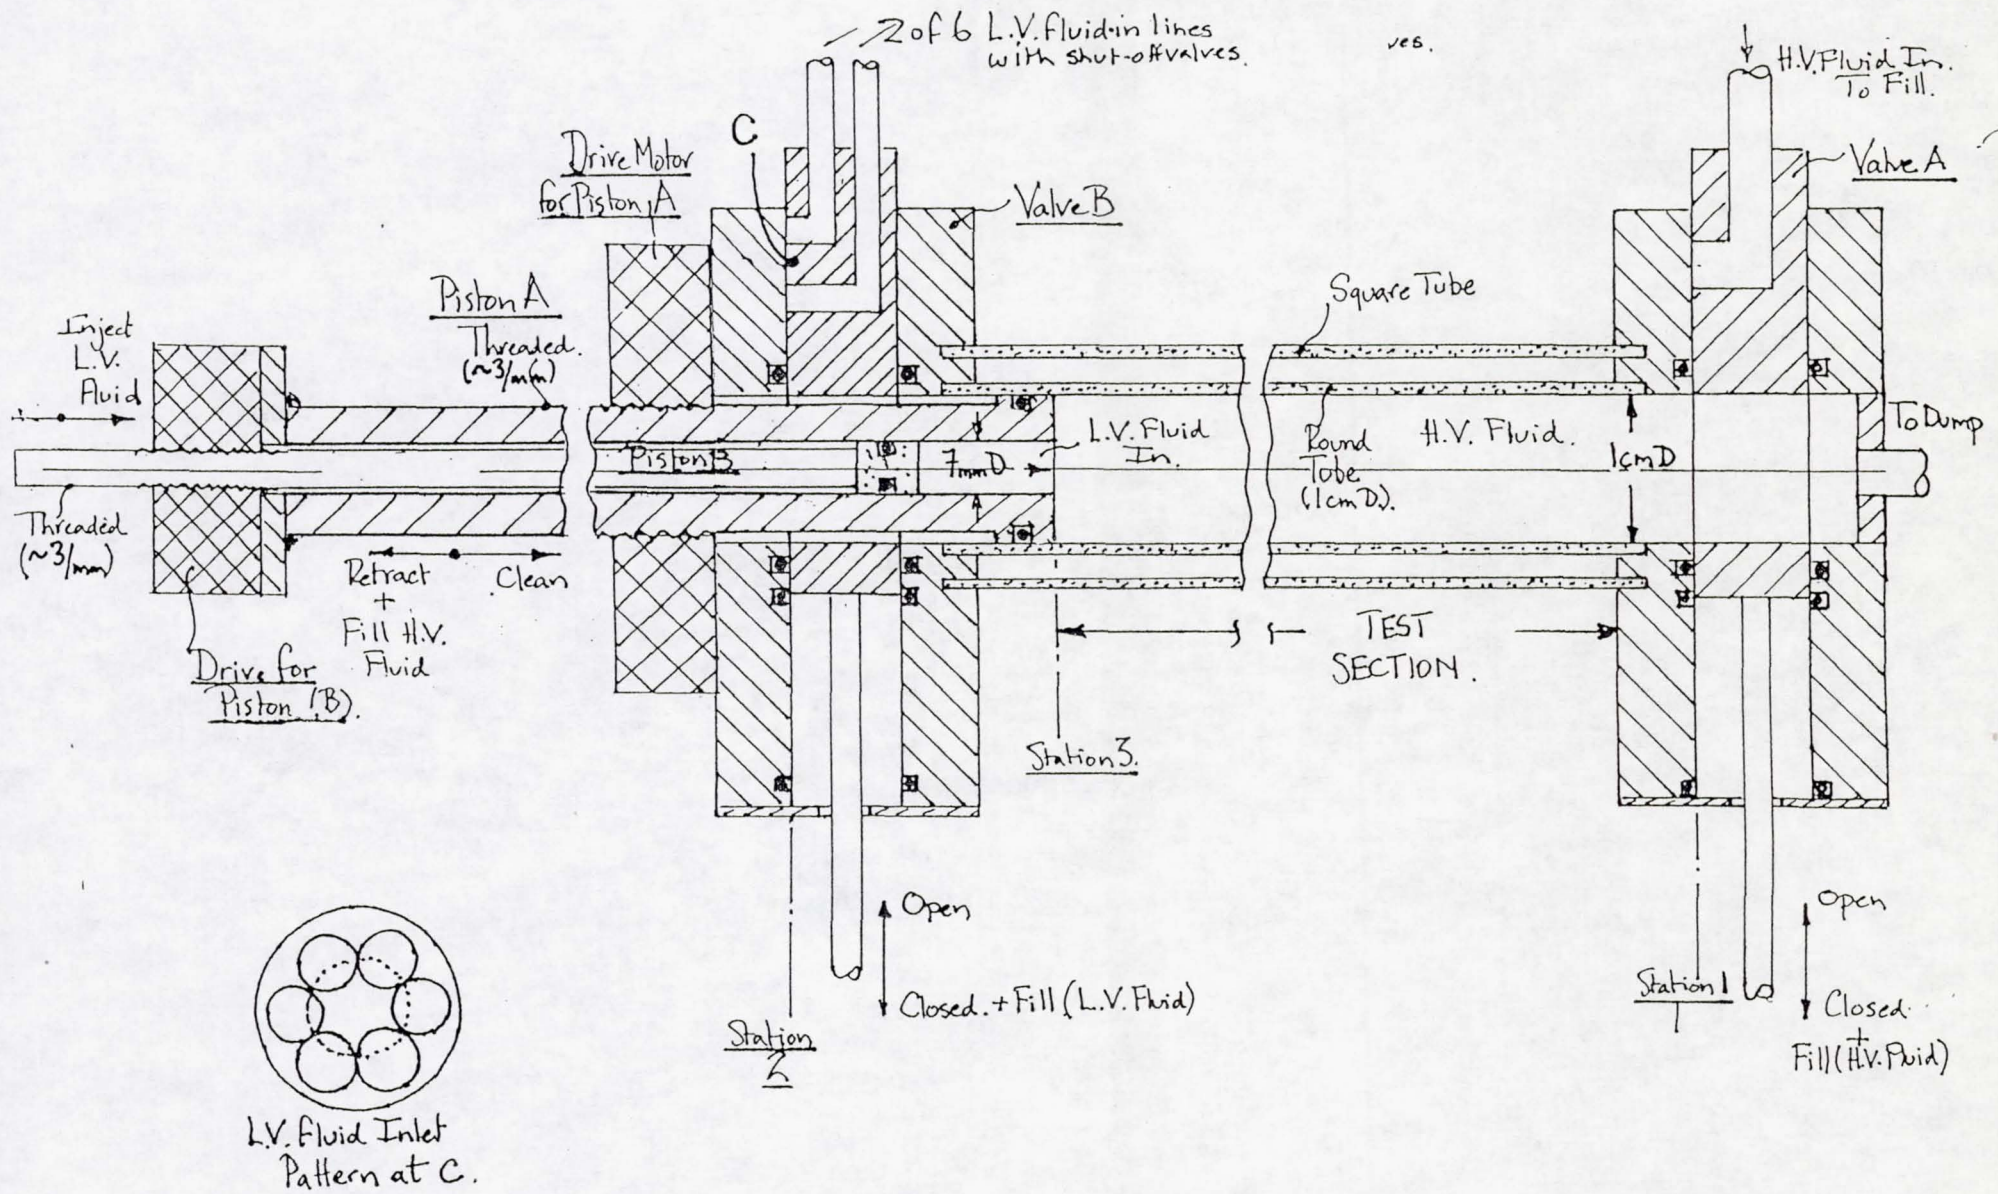 2 of 6 L.V. Fluid-in lines
with shut-off valves.
ves.
H.V. Fluid In.
To Fill.
C
Drive Motor
for Piston A
Valve B
Valve A
Piston A
Threaded.
(~3/mm)
Inject
L.V.
Fluid
Square Tube
To Dump
L.V. Fluid
In.
Round
Tube
(1cmD).
H.V. Fluid.
1cmD
Piston B
7mmD
Threaded
(~3/mm)
Retract
+
Fill H.V.
Fluid
Clean
Drive for
Piston (B).
TEST
SECTION.
Station 3.
Open
Closed. + Fill (L.V. Fluid)
Station
2
Open
Station 1
Closed.
+
Fill (H.V. Fluid)
L.V. Fluid Inlet
Pattern at C.